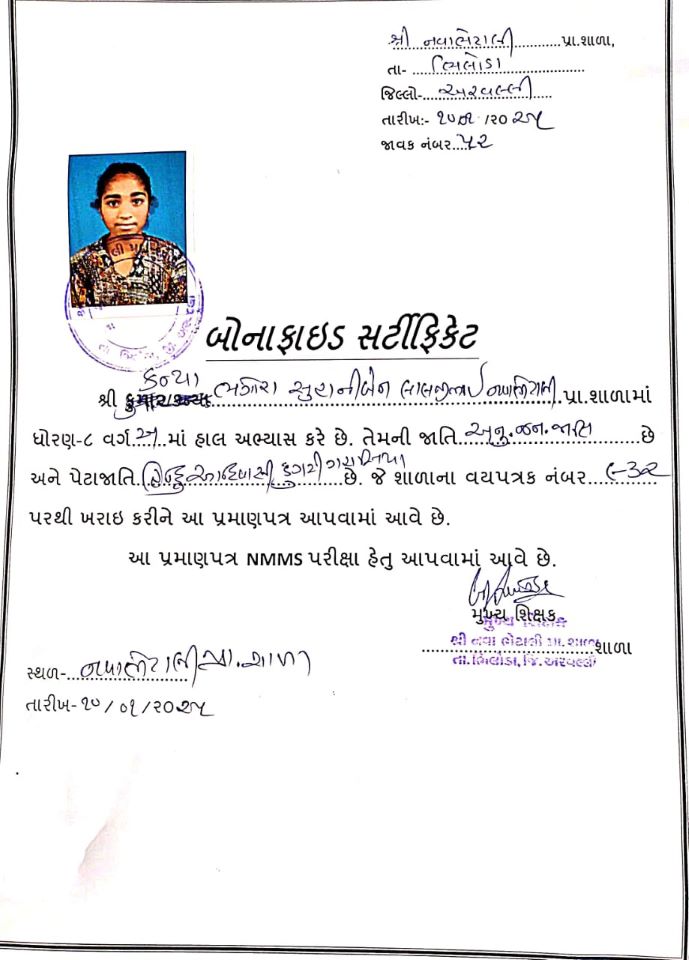 શ્રી નવાભેટાલી પ્રા.શાળા,
તા- ભિલોડા
જિલ્લો- અરવલ્લી
તારીખ:- ૧૦/૦૧ /૨૦૨૫
જાવક નંબર.... ૫૨
બોનાફાઇડ સર્ટીફિકેટ
કન્યા
શ્રી કુમાર/કન્યા ભગોરા સુરાનીબેન લાલજીભાઈ નવાભેટાલી પ્રા.શાળામાં
ધોરણ-૮ વર્ગ અ માં હાલ અભ્યાસ કરે છે. તેમની જાતિ અનુ.જન.જાતિ છે
અને પેટાજાતિ હિન્દુ આદિવાસી ડુંગરી ગરાસિયા છે. જે શાળાના વયપત્રક નંબર
પરથી ખરાઇ કરીને આ પ્રમાણપત્ર આપવામાં આવે છે.
આ પ્રમાણપત્ર NMMS પરીક્ષા હેતુ આપવામાં આવે છે.
મુખ્ય શિક્ષક
મુખ્ય શિક્ષક
શ્રી નવા ભેટાલી પ્રા. શાળા શાળા
તા. ભિલોડા, જિ. અરવલ્લી
સ્થળ- નવાભેટાલી પ્રા. શાળા
તારીખ- ૧૦/૦૧/૨૦૨૫